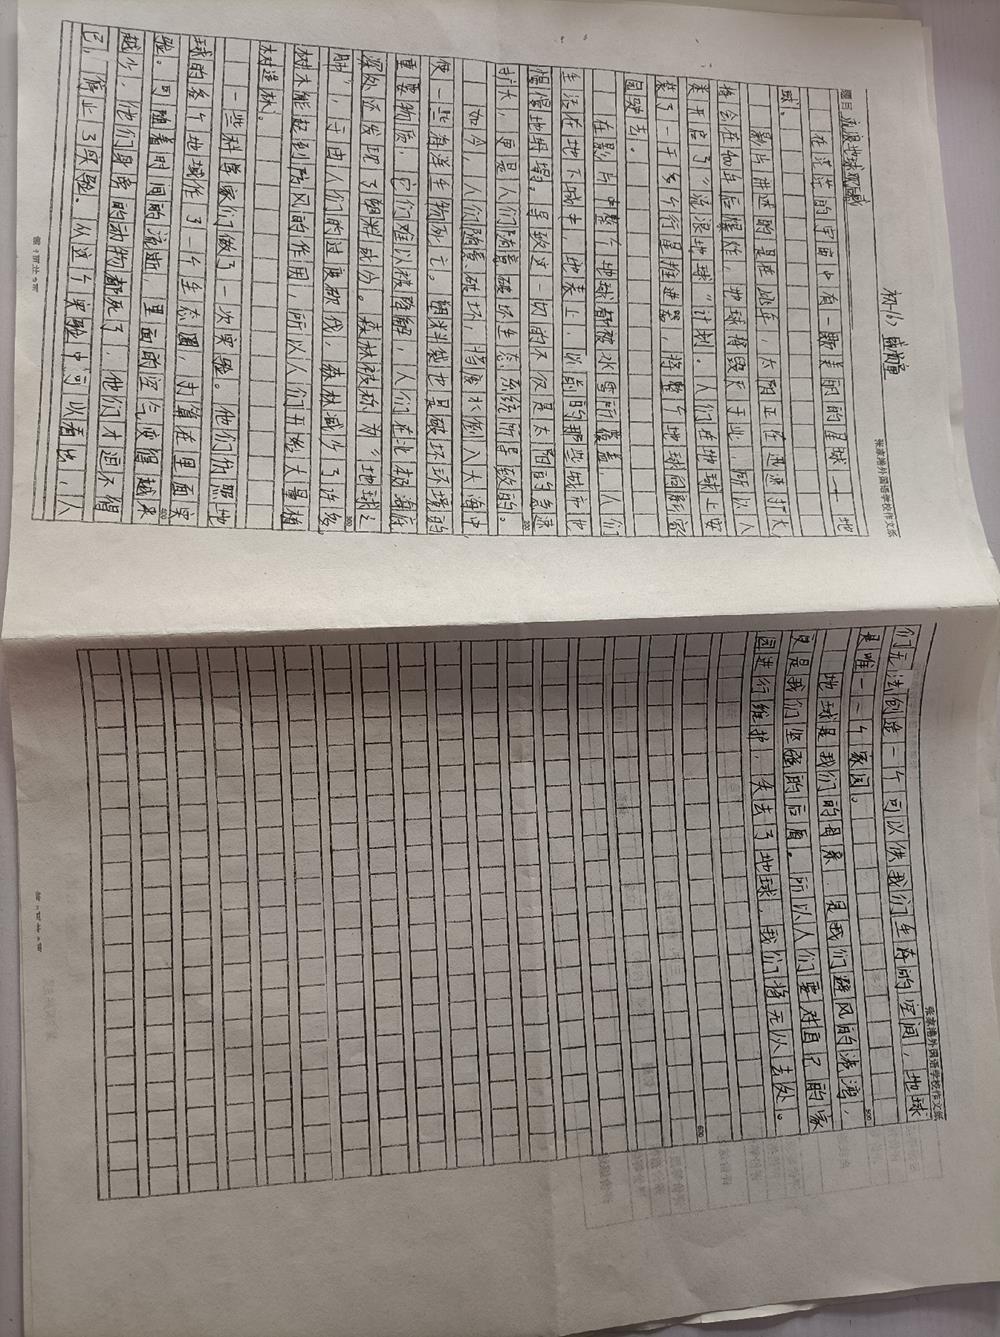 张家港外国语学校作文纸
题目 流浪地球观后感
在茫茫的宇宙中有一颗美丽的星球——地
球。
影片讲述的是在此年，太阳正在迅速扩大
将会在如年后爆炸，地球将毁灭于此，所以人
类开启了“流浪地球”计划。人们在地球上安
装了一千多个行星推进器，将整个地球向影家
园驶去。
在影片中整个地球都被冰雪所覆盖，人们
生活在地下城中，地表上，以前的那些城市也
慢慢地坍塌。导致这一切的不仅是太阳的急速
扩大，更是人们随意破坏生态系统所导致的。
如今，人们随意破坏，将废水倒入大海中
使一些海洋生物死亡。塑料袋也是破坏环境的
重要物质，它们难以被降解，人们在北极海底
深处还发现了塑料成分。森林被称为“地球之
肺”，于由人们的过度砍伐，森林减少了许多
树木能起到防风的作用，所以人们开始大量植
树造林。
一些科学家们做了一次实验。他们仿照地
球的各个地域作了一个生态圈，打算在里面实
验。可随着时间的流逝，里面的空气变得越来
越少，他们身旁的动物都死了，他们才迫不得
已，停止了实验。从这个实验中可以看出，人
200
300
400
张家港外国语学校作文纸
们无法创造一个可以供我们生存的空间，地球
是唯一一个家园。
地球是我们的母亲，是我们避风的港湾，
更是我们坚强的后盾。所以人们要对自己的家
园进行维护，失去了地球，我们将无以去处。
500
600